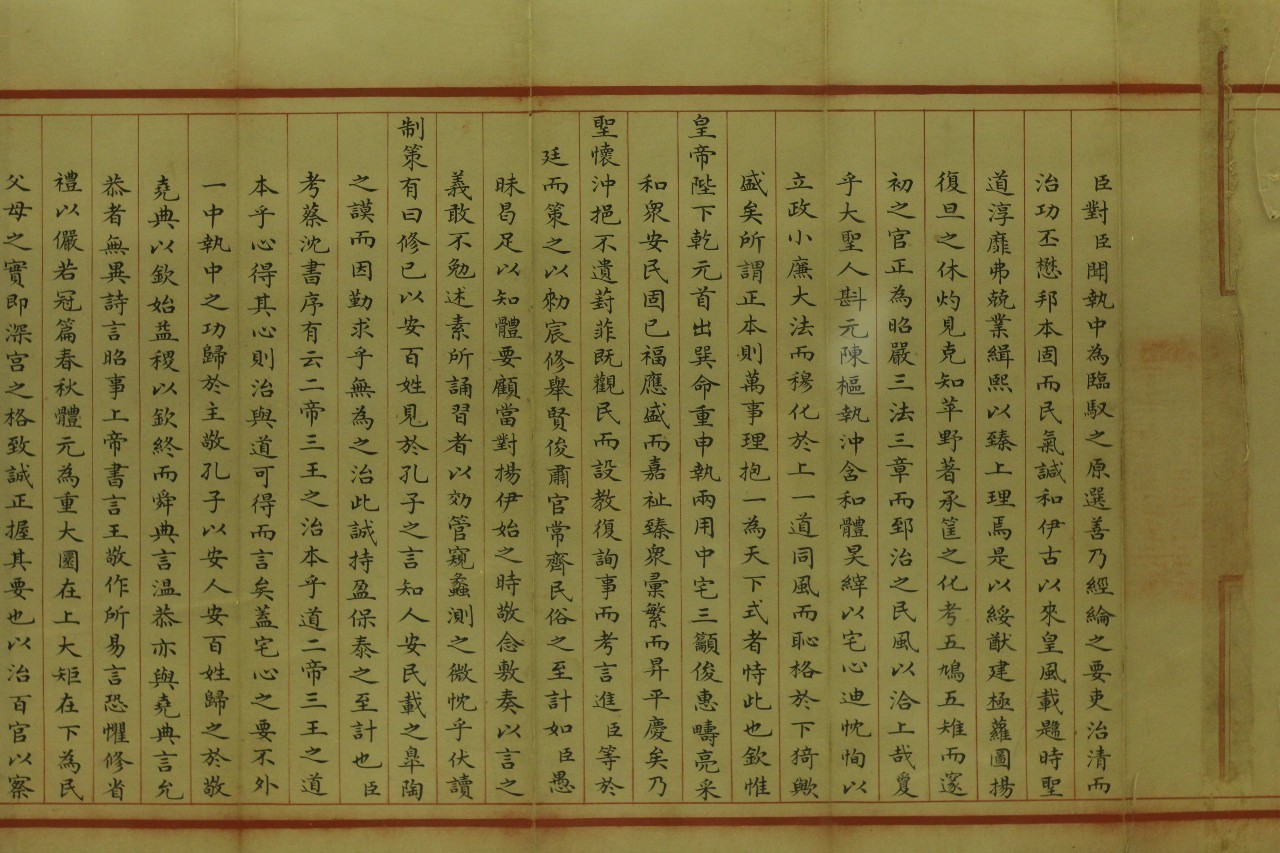 臣對臣聞執中為臨馭之原選善乃經綸之要吏治清而
治功丕懋邦本固而民氣諴和伊古以來皇風載颺時聖
道淳靡弗兢業緝熙以臻上理焉是以綏猷建極蘿圖揚
復旦之休灼見克知苹野著承筐之化考五鳩五雉而邃
初之官正為昭嚴三法三章而郅治之民風以洽上哉夐
乎大聖人斟元陳樞執沖含和體昊縡以宅心迪忱恂以
立政小廉大法而穆化於上一道同風而恥格於下猗歟
盛矣所謂正本則萬事理抱一為天下式者恃此也欽惟
皇帝陛下乾元首出巽命重申執兩用中宅三籲俊惠疇亮采
和衆安民固已福應盛而嘉祉臻衆彙繁而昇平慶矣乃
聖懷沖挹不遺葑菲既觀民而設教復詢事而考言進臣等於
廷而策之以勑宸修舉賢俊肅官常齊民俗之至計如臣愚
昧曷足以知體要顧當對揚伊始之時敬念敷奏以言之
義敢不勉述素所誦習者以効管窺蠡測之微忱乎伏讀
制策有曰修已以安百姓見於孔子之言知人安民載之臯陶
之謨而因勤求乎無為之治此誠持盈保泰之至計也臣
考蔡沈書序有云二帝三王之治本乎道二帝三王之道
本乎心得其心則治與道可得而言矣蓋宅心之要不外
一中執中之功歸於主敬孔子以安人安百姓歸之於敬
堯典以欽始益稷以欽終而舜典言溫恭亦與堯典言允
恭者無異詩言昭事上帝書言王敬作所易言恐懼修省
禮以儼若冠篇春秋體元為重大圜在上大矩在下為民
父母之實即深宮之格致誠正握其要也以治百官以察